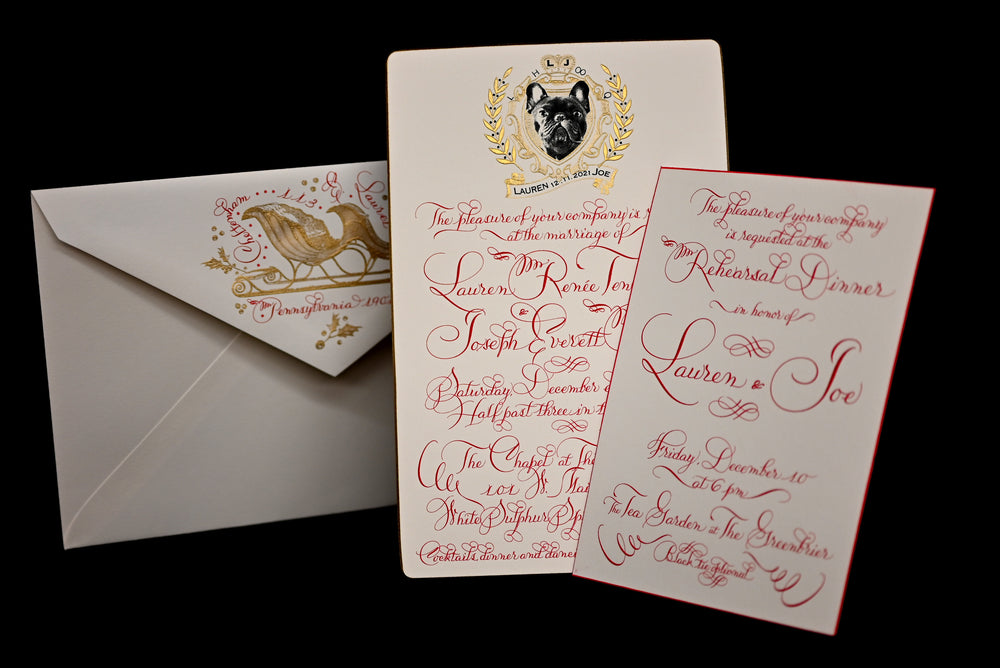 Cheltenham
113
Lauren
Pennsylvania 190
L H L J Q
LAUREN 12.11.2021 JOE
The pleasure of your company is
at the marriage of
Lauren Renée
Joseph Everett
Saturday, December
Half past three in
The Chapel at The
101 W. Mai
White Sulphur Sp
Cocktails dinner and danc
The pleasure of your company
is requested at the
Rehearsal Dinner
in honor of
Lauren & Joe
Friday, December 10
at 6 pm
The Tea Garden at The Greenbrier
Black tie optional